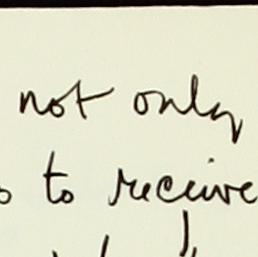 not only
to receive